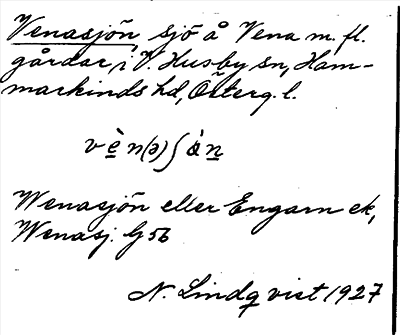 Venasjön, sjö å Vena m. fl.
gårdar, i V. Husby sn, Ham-
markinds hd, Österg. l.
vè̱n(ə)ʃȧ̀ṉ
Wenasjön eller Engarn ek,
Wenasj. G 56
N. Lindqvist 1927